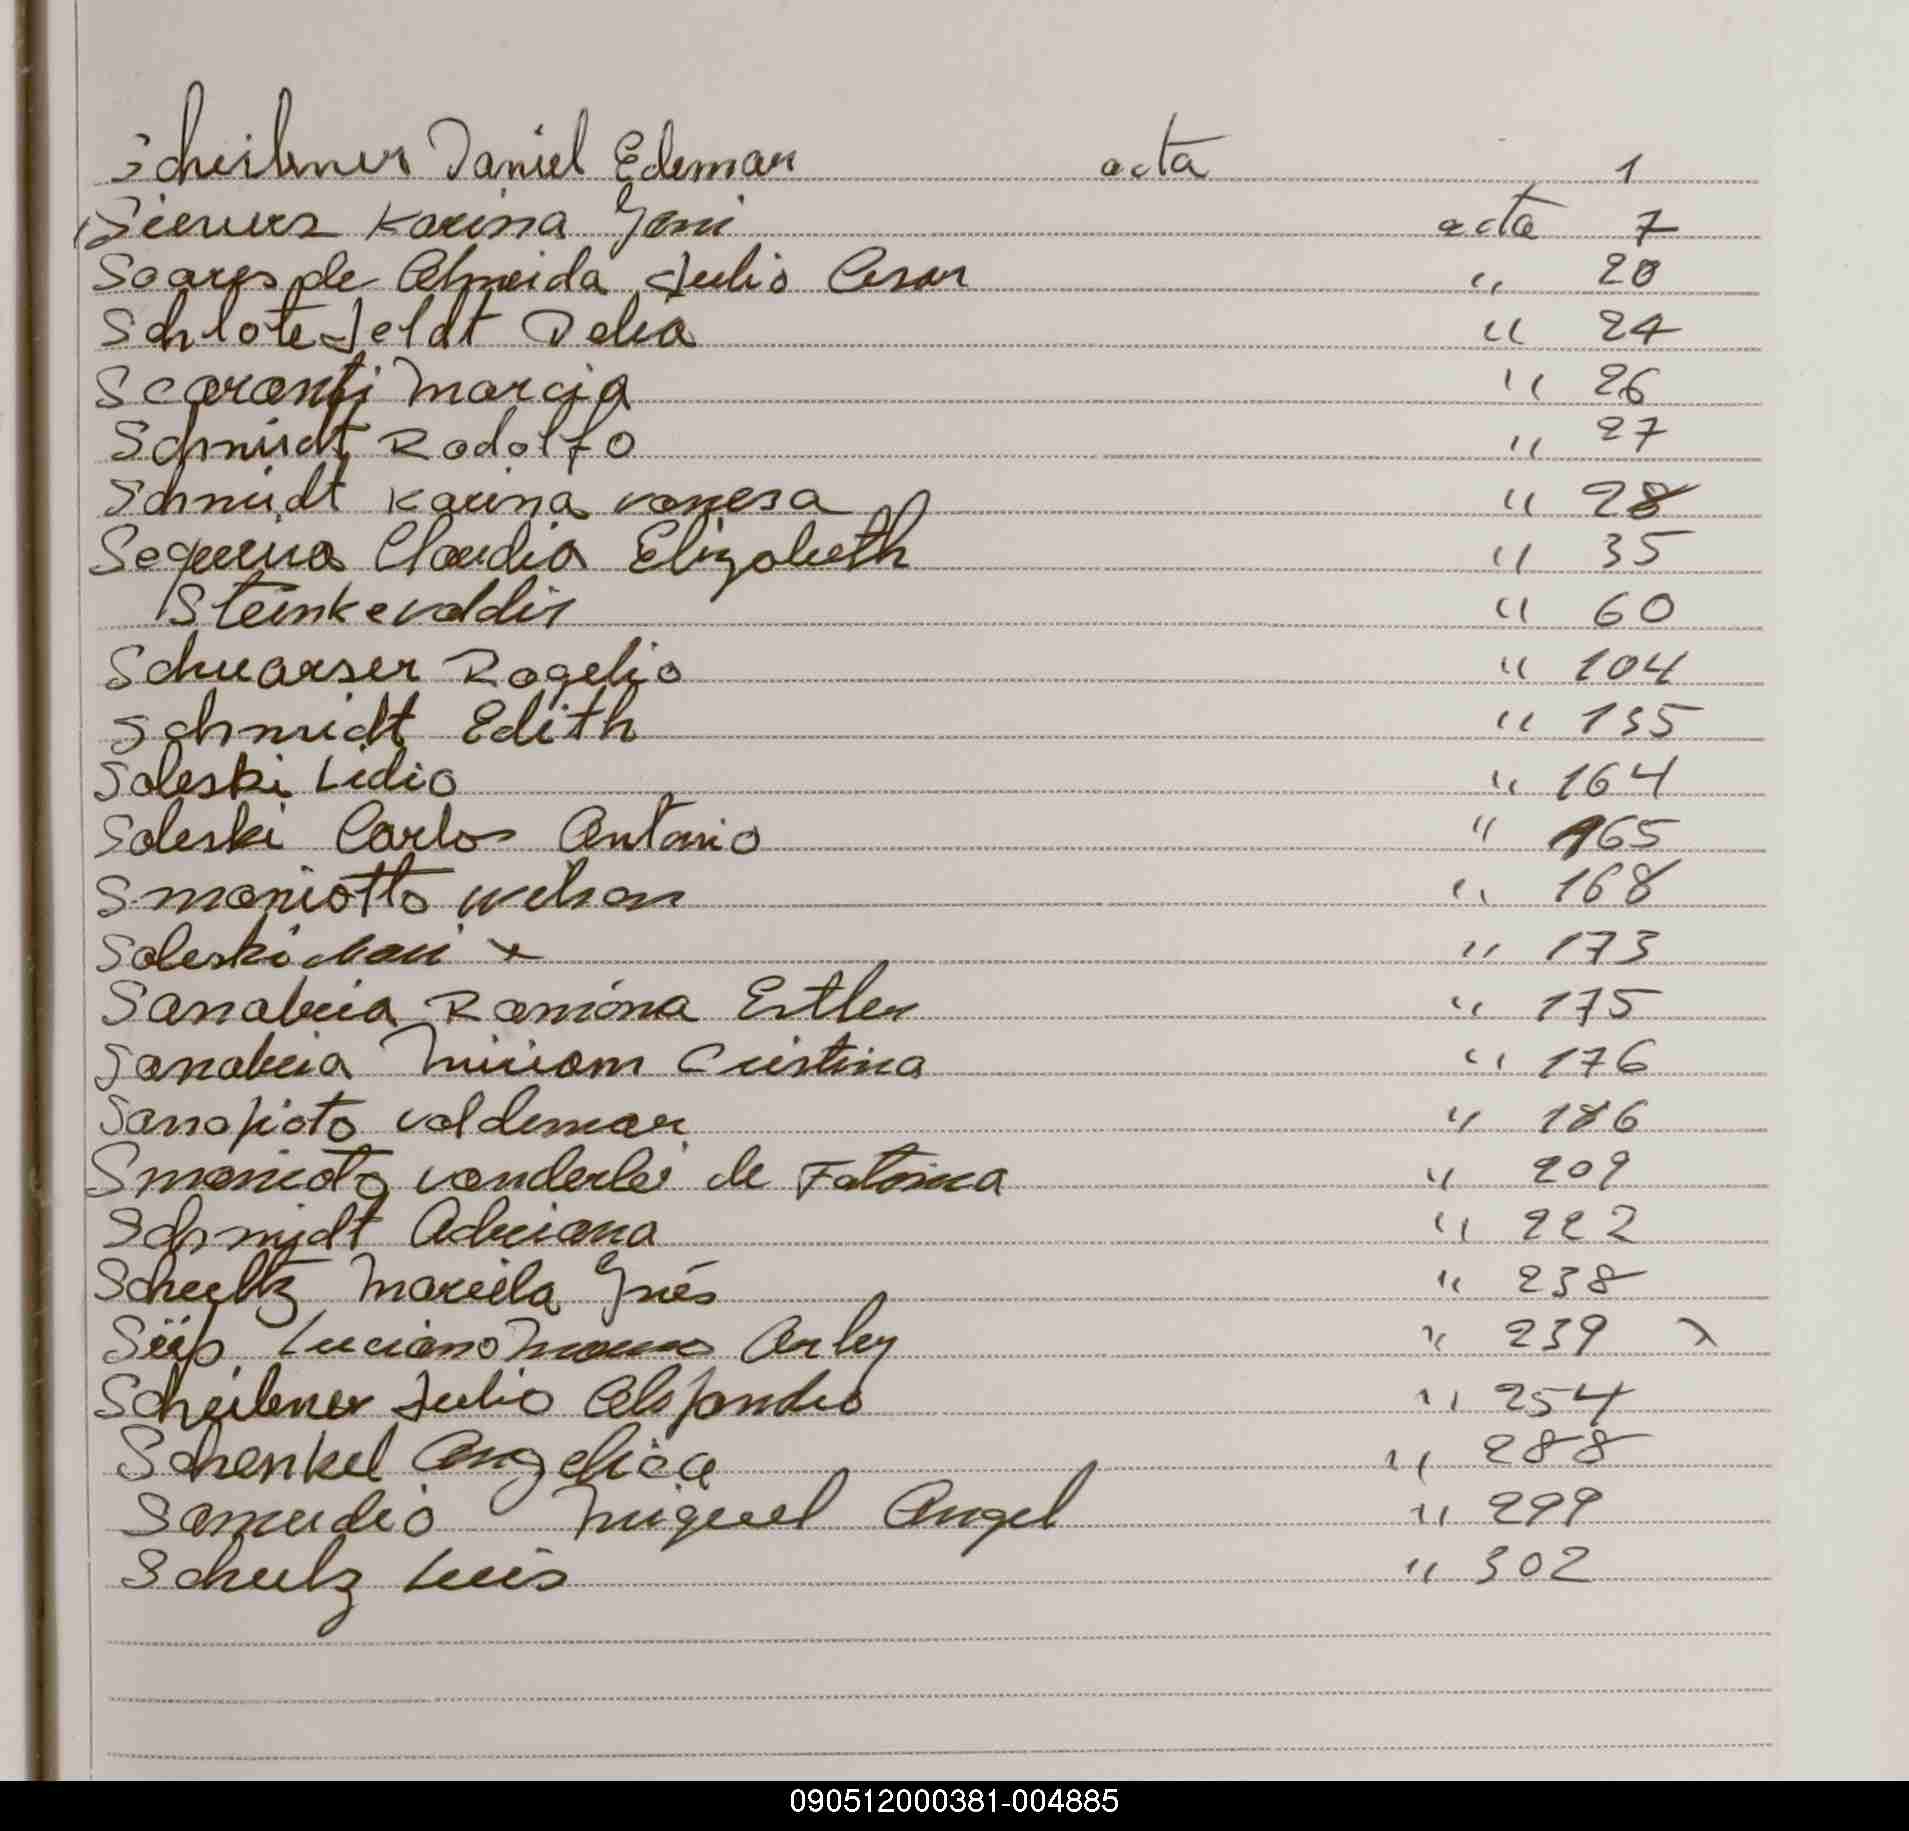 Scheibner Daniel Edemar acta 1
Sievers Karina Yani acta 7
Soares de Almeida Julio Cesar " 20
Schlotefeldt Delia " 24
Scaranti Marcia " 26
Schmidt Rodolfo " 27
Schmidt Karina Vanesa " 28
Sequeira Claudia Elizabeth " 35
Steinke valdir " 60
Schuarser Rogelio " 104
Schmidt Edith " 135
Soleski Lidio " 164
Soleski Carlos Antonio " 165
Smaniotto Wilson " 168
Soleski x " 173
Sanabria Ramona Esther " 175
Sanabria Miriam Cristina " 176
Valdemar " 186
Smanioto vanderlei de Fatima " 209
Schmidt Adriana " 222
Schultz Mariela Ynés " 238
Luciano Arley " 239 x
Scheibner Julio Alejandro " 254
Schenkel Angelica " 288
Samudio Miguel Angel " 299
Schulz Luis " 302
090512000381-004885